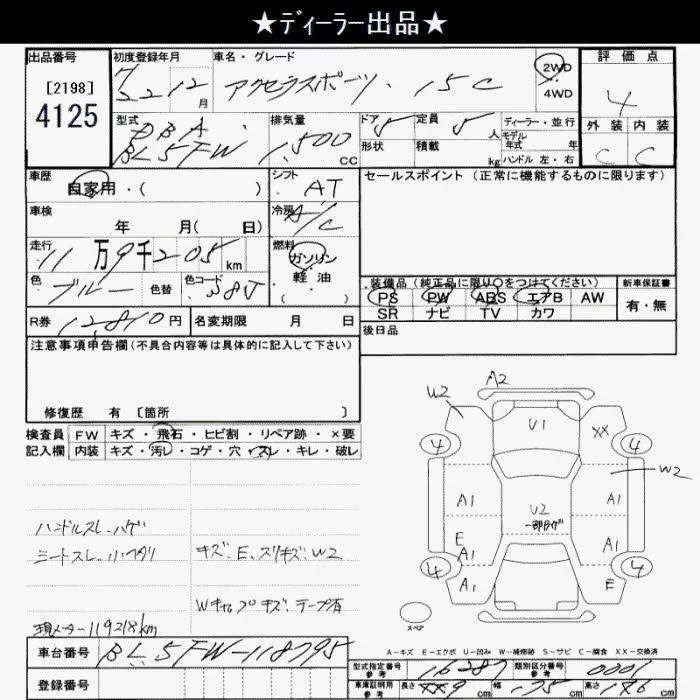 ★ディーラー出品★
出品番号 初度登録年月 車名・グレード 評価点
[2198] 22 12月 アクセラスポーツ . 15C 2WD 4WD 4
4125
型式 排気量 ドア 5 定員 5人 ディーラー・並行 外装 内装
DBA. BL5FW 1,500 CC 形状 積載 kg モデル年式 年 C C
ハンドル 左・右
車歴 自家用・( ) シフト AT セールスポイント (正常に機能するものに限ります)
車検 年 月( 日) 冷房 A/C
走行 11万9千205km 燃料 ガソリン 軽油
色 ブルー 色替 色コード 38J
装備品(純正品に限り○をつけてください) 新車保証書
PS PW ABS エアB AW 有・無
SR ナビ TV カワ
R券 12,810円 名変期限 月 日 後日品
注意事項申告欄(不具合内容等は具体的に記入して下さい)
修復歴 有 〔箇所 〕
検査員 FW キズ・飛石・ヒビ割・リペア跡・×要
記入欄 内装 キズ・汚レ・コゲ・穴・スレ・キレ・破レ
A2
W2 U1 XX
4 4
W2
A1 U2 A1
E 一部
A1 A1
4 4
A1 E
スペア
ハンドルスレ、ハゲ
シートスレ、小ヘタリ キズ、E、スリキズ、W2
キズ、テープ有
現メーター119218km
A-キズ E-エクボ U-凹み W-補修跡 S-サビ C-腐食 XX-交換済
車台番号 BL5FW-118795
型式指定番号参考 16287 類別区分番号参考 0001
登録番号 車庫証明用参考 長さ cm 幅 175cm 高さ 146cm